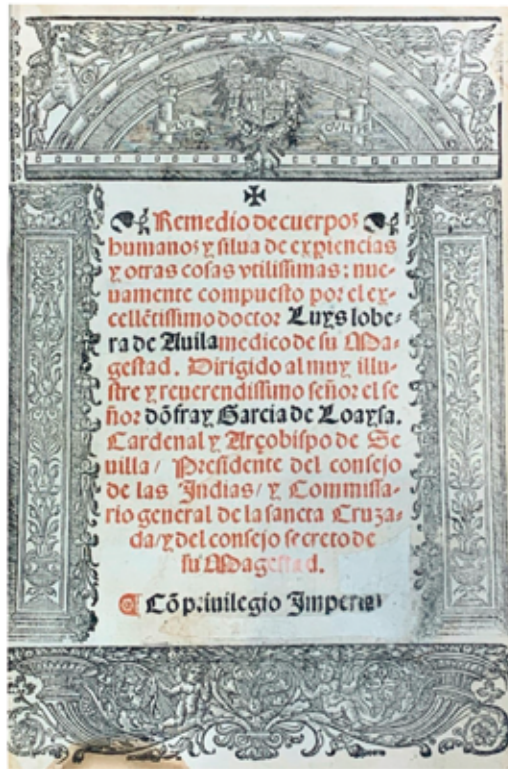 PLVS OVLTRE
✠
Remedio de cuerpos
humanos y silua de exꝑiencias
y otras cosas vtilissimas: nue-
uamente compuesto por el ex-
cellẽtissimo doctor Luys lobe-
ra de Auila medico de su Ma-
gestad. Dirigido al muy illu-
stre y reuerendissimo señor el se
ñor dõ fray Garcia de Loaysa.
Cardenal y Arçobispo de Se
uilla/ Presidente del consejo
de las Indias/ y Commissa-
rio general de la sancta Cruza-
da/ y del consejo secreto de
su Magestad.
¶ Cõ priuilegio Imperial